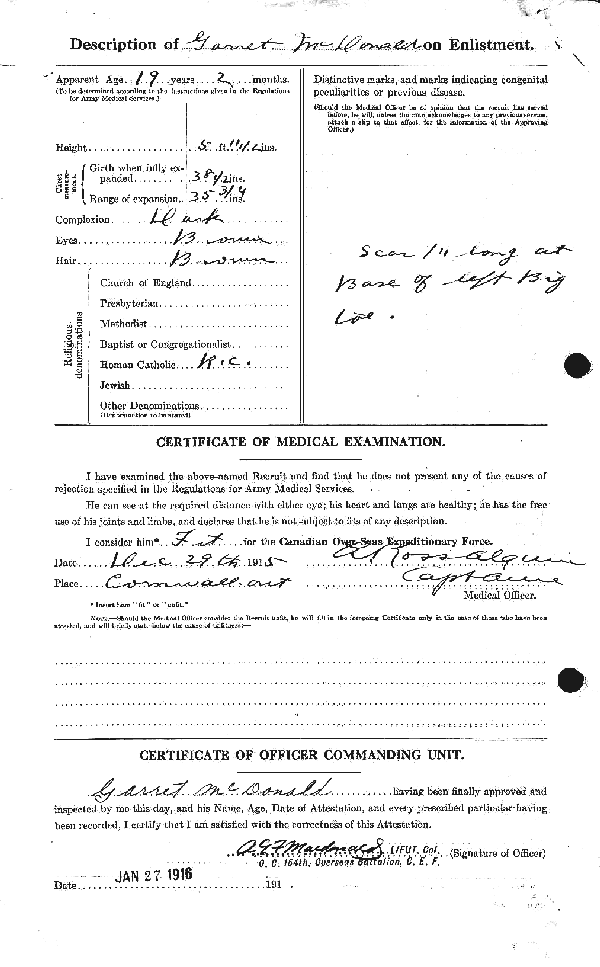 Description of Garret McDonald on Enlistment.
Apparent Age 19 years 2 months.
(To be determined according to the instructions given in the Regulations
for Army Medical Services.)
Height 5 ft. 11 1/2 ins.
Chest measurement.
Girth when fully expanded 38 1/2 ins.
Range of expansion 35 3/4 ins.
Complexion Dark
Eyes Brown
Hair Brown
Religious denominations
Church of England
Presbyterian
Methodist
Baptist or Congregationalist
Roman Catholic R.C.
Jewish
Other Denominations
(Denomination to be stated)
Distinctive marks, and marks indicating congenital
peculiarities or previous disease.
(Should the Medical Officer be of opinion that the recruit has served
before, he will, unless the man acknowledges to any previous service,
attach a slip to that effect, for the information of the Approving
Officer.)
Scar 1" long at
Base of left Big
toe.
CERTIFICATE OF MEDICAL EXAMINATION.
I have examined the above-named Recruit and find that he does not present any of the causes of
rejection specified in the Regulations for Army Medical Services.
He can see at the required distance with either eye; his heart and lungs are healthy; he has the free
use of his joints and limbs, and declares that he is not subject to fits of any description.
I consider him* Fit for the Canadian Over-Seas Expeditionary Force.
Date Dec 29th 1915
Place Cornwall Ont Captain
Medical Officer.
*Insert here "fit" or "unfit."
NOTE.—Should the Medical Officer consider the Recruit unfit, he will fill in the foregoing Certificate only in the case of those who have been
attested, and will briefly state below the cause of unfitness:—
CERTIFICATE OF OFFICER COMMANDING UNIT.
Garret McDonald having been finally approved and
inspected by me this day, and his Name, Age, Date of Attestation, and every prescribed particular having
been recorded, I certify that I am satisfied with the correctness of this Attestation.
AGF Macdonald LIEUT. Col. (Signature of Officer)
O. C. 154th, Overseas Battalion, C. E. F.
Date JAN 27 1916 191